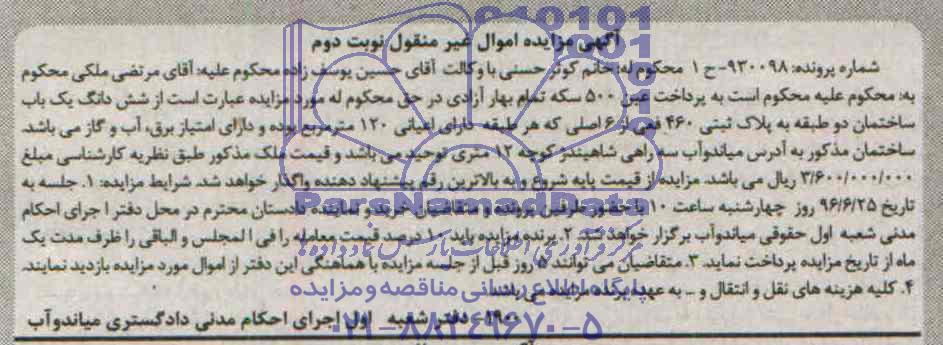 آگهی مزایده اموال غیر منقول نوبت دوم
شماره پرونده: ۹۳۰۰۹۸-ح ۱ محکوم له: خانم کوثر حسنی با وکالت آقای حسین یوسف زاده محکوم علیه: آقای مرتضی ملکی محکوم
به: محکوم علیه محکوم است به پرداخت عین ۵۰۰ سکه تمام بهار آزادی در حق محکوم له مورد مزایده عبارت است از شش دانگ یک باب
ساختمان دو طبقه به پلاک ثبتی ۴۶۰ فعی از ۶ اصلی که هر طبقه دارای اعیانی ۱۲۰ مترمربع بوده و دارای امتیاز برق، آب و گاز می باشد.
ساختمان مذکور به آدرس میاندوآب سه راهی شاهیندژ کوچه ۱۲ متری توحید می باشد و قیمت ملک مذکور طبق نظریه کارشناسی مبلغ
۳/۶۰۰/۰۰۰/۰۰۰ ریال می باشد. مزایده از قیمت پایه شروع و به بالاترین رقم پیشنهاد دهنده واگذار خواهد شد. شرایط مزایده: ۱. جلسه به
تاریخ ۹۶/۶/۲۵ روز چهارشنبه ساعت ۱۰ با حضور طرفین پرونده و متقاضیان خرید و نماینده دادستان محترم در محل دفتر اجرای احکام
مدنی شعبه اول حقوقی میاندوآب برگزار خواهد شد. ۲. برنده مزایده باید ۱۰ درصد قیمت معامله را فی المجلس و الباقی را ظرف مدت یک
ماه از تاریخ مزایده پرداخت نماید. ۳. متقاضیان می توانند ۵ روز قبل از جلسه مزایده با هماهنگی این دفتر از اموال مورد مزایده بازدید نمایند.
۴. کلیه هزینه های نقل و انتقال و ... به عهده برنده مزایده می باشد
۱۹۰۰- دفتر شعبه اول اجرای احکام مدنی دادگستری میاندوآب
ParsNamadData
پایگاه اطلاع رسانی مناقصه و مزایده
۰۲۱-۸۸۳۴۹۶۷۰-۵